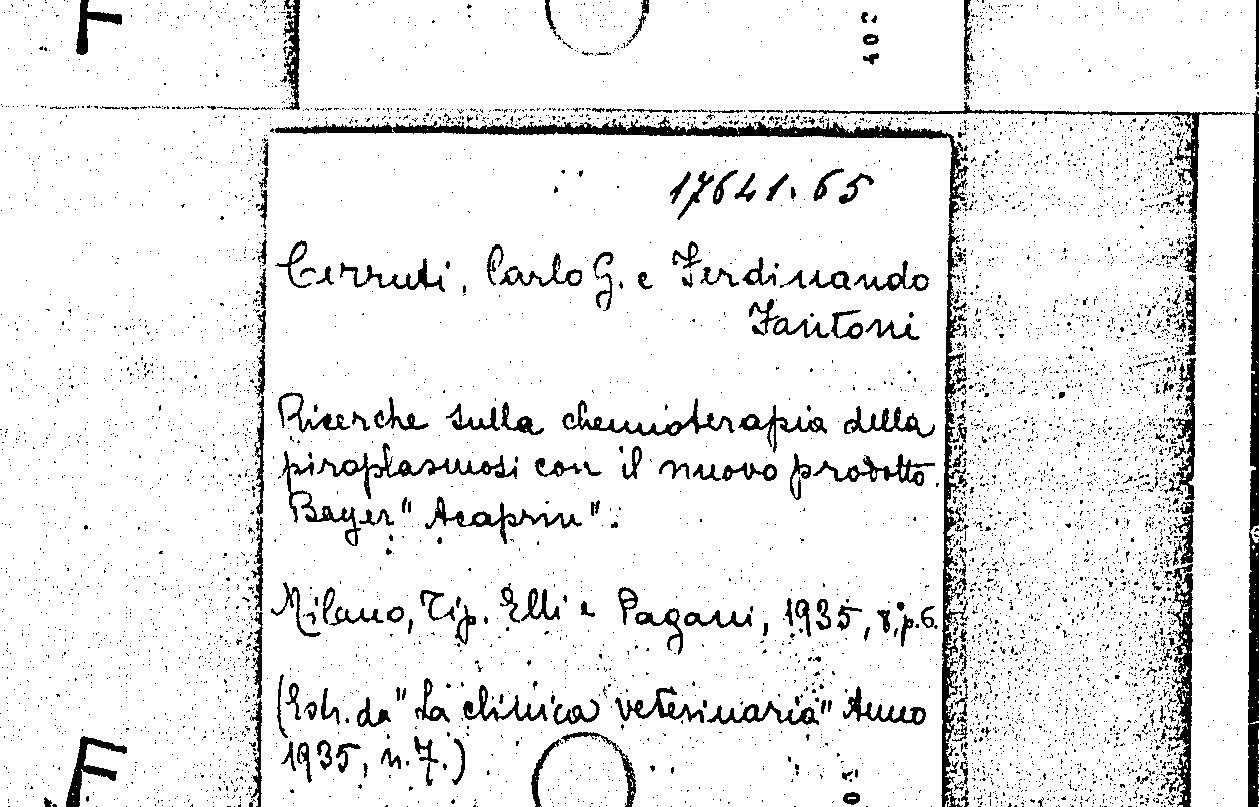 F
402
17641.65
Cerruti, Carlo G. e Ferdinando
Fantoni
Ricerche sulla chemioterapia della
piroplasmosi con il nuovo prodotto
Bayer "Acaprin".
Milano, Tip. Elli e Pagani, 1935, 8°, p. 6.
(Estr. da "La clinica veterinaria" Anno
1935, n. 7.)
F